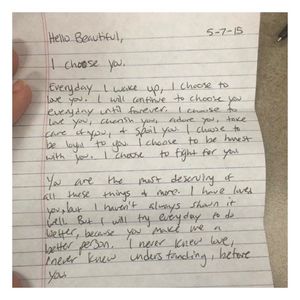 5-7-15
Hello Beautiful,
I choose you.
Everyday I wake up, I choose to
love you. I will continue to choose you
everyday until forever. I choose to
love you, cherish you, adore you, take
care of you, & spoil you I choose to
be loyal to you I choose to be honest
with you. I choose to fight for you
You are the most deserving of
all these things & more. I have loved
you, but I haven't always shown it
well. But I will try everyday to do
better, because you make me a
better person. I never knew love,
I never knew understanding, before
you.